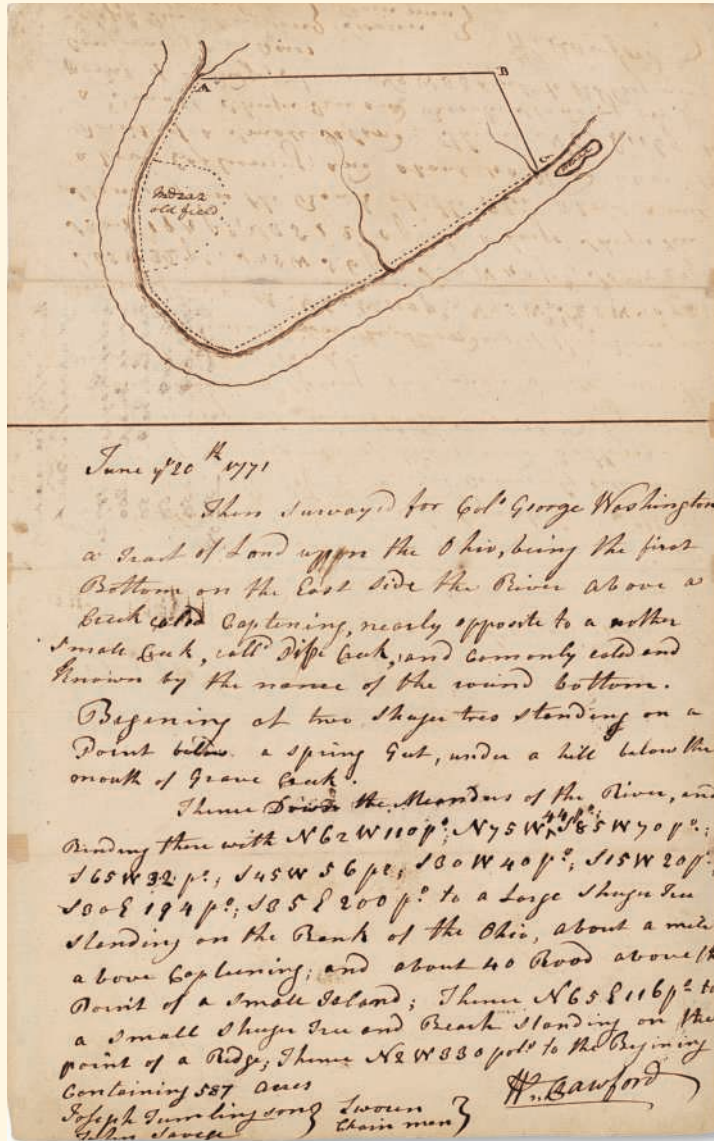 A
B
C
old field
June ye 20th 1771
Then survay'd for Colo George Washington
a Tract of Land uppon the Ohio, being the first
Bottom on the East Side the River above a
Creek Captening, nearly opposite to a nother
Small Creek, and Comonly caled and
Known by the name of the round bottom.
Begening at two Shuger trees standing on a
Point a spring Gut, under a hill below the
mouth of Grave Creek.
Thence Down the Meanders of the River, and
Binding there with N62W 110 po; N75W 44 po; S85W 70 po;
S65W 32 po; S45W 56 po; S30W 40 po; S15W 20 po;
S30E 194 po; S35E 200 po to a Large Shuger Tree
standing on the Bank of the Ohio, about a mile
above Capteening; and about 40 Rood above the
Point of a Small Island; Thence N65E 116 po to
a Small Shuger Tree and Beach standing on the
point of a Ridge; Thence N2W 330 pols to the Begining
Containing 587 Acres
Wm Crawford
Joseph Tumlingson } Sworn
John Savege } Chain men }